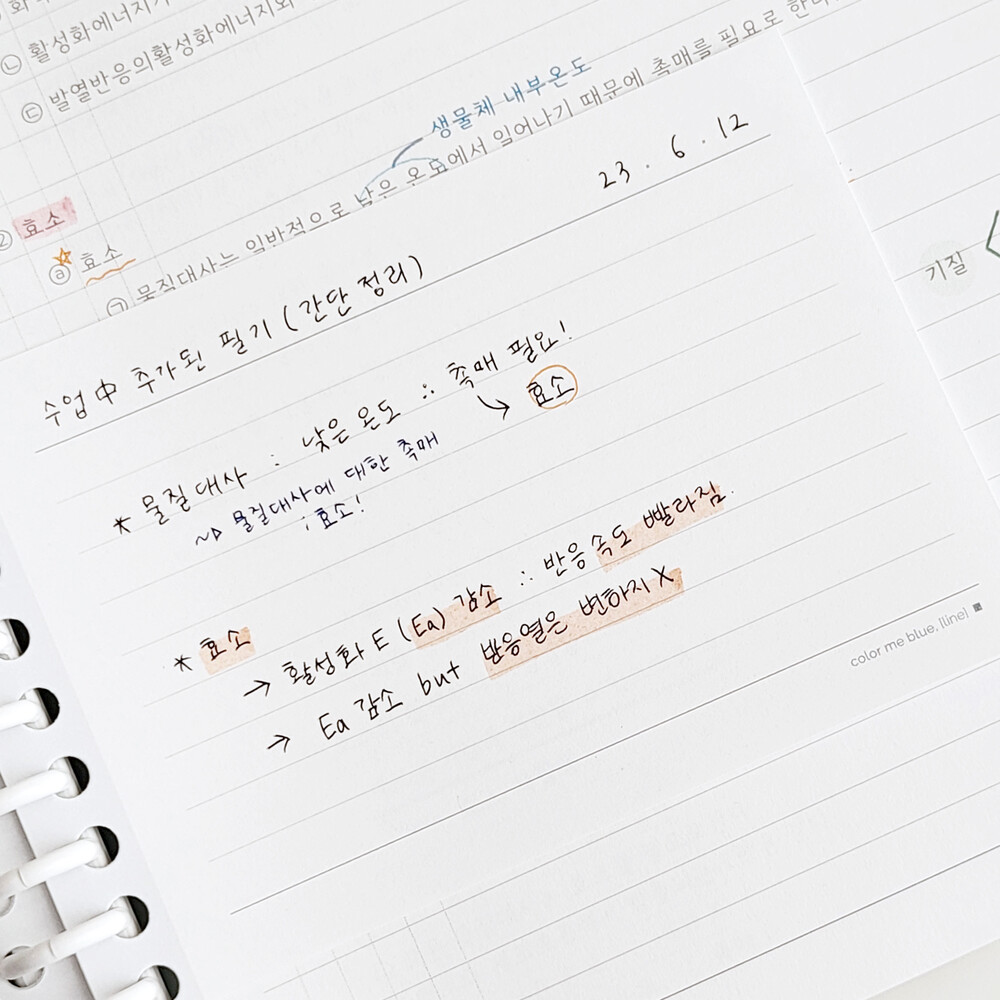 활성화에너지
ㄴ 활성화에너지가
ㄷ 발열반응의활성화에너지와
생물체 내부온도
② 효소
ⓐ 효소
㉠ 물질대사는 일반적으로 낮은 온도에서 일어나기 때문에 촉매를 필요로 한다
기질
23. 6. 12
수업 中 추가된 필기 (간단 정리)
* 물질대사 : 낮은 온도 ∴ 촉매 필요!
↘ 효소
~▷ 물질대사에 대한 촉매
: 효소!
* 효소
→ 활성화 E (Ea) 감소 ∴ 반응속도 빨라짐.
→ Ea 감소 but 반응열은 변하지 X
color me blue, [line]